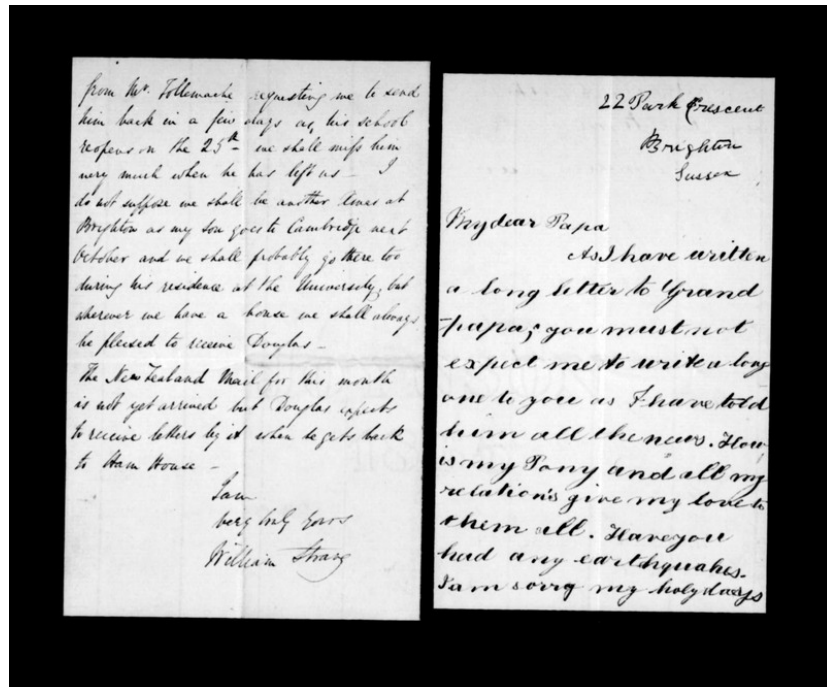 from Mr. Tollemache requesting me to send
him back in a few days as, his school
reopens on the 25th we shall miss him
very much when he has left us - I
do not suppose we shall be another at
Brighton as my son goes to Cambridge next
October and we shall probably go there too
during his residence at the University, but
wherever we have a house we shall always
be pleased to receive Douglas -
The New Zealand Mail for this month
is not yet arrived but Douglas expects
to receive letters by it when he gets back
to Ham House -
I am
very truly yours
William Strang
22 Park Crescent
Brighton
Sussex
My dear Papa
As I have written
a long letter to Grand
papa; you must not
expect me to write a long
one to you as I have told
him all the news. How
is my Pony and all my
relation's give my love to
them all. Have you
had any earthquakes.
I am sorry my holydays